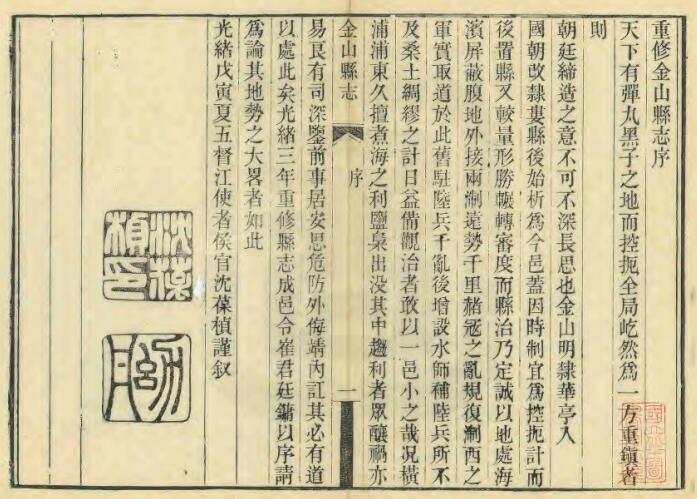 重修金山縣志序
天下有彈丸黑子之地而控扼全局屹然爲一方重鎭者
則
朝廷締造之意不可不深長思也金山明隸華亭入
國朝改隸婁縣後始析爲今邑蓋因時制宜爲控扼計而
後置縣又較量形勝輾轉審度而縣治乃定誠以地處海
濱屏蔽腹地外接兩浙遠勢千里赭寇之亂規復浙西之
軍實取道於此舊駐陸兵千亂後增設水師補陸兵所不
及桑土綢繆之計日益備觀治者敢以一邑小之哉况橫
浦浦東久擅煮海之利鹽梟出没其中趨利者眾釀禍亦
金山縣志
序
一
易良有司深鑒前事居安思危防外侮靖內訌其必有道
以處此矣光緒三年重修縣志成邑令崔君廷鏞以序請
爲論其地勢之大畧者如此
光緒戊寅夏五督江使者侯官沈葆楨謹叙
沈葆
楨印